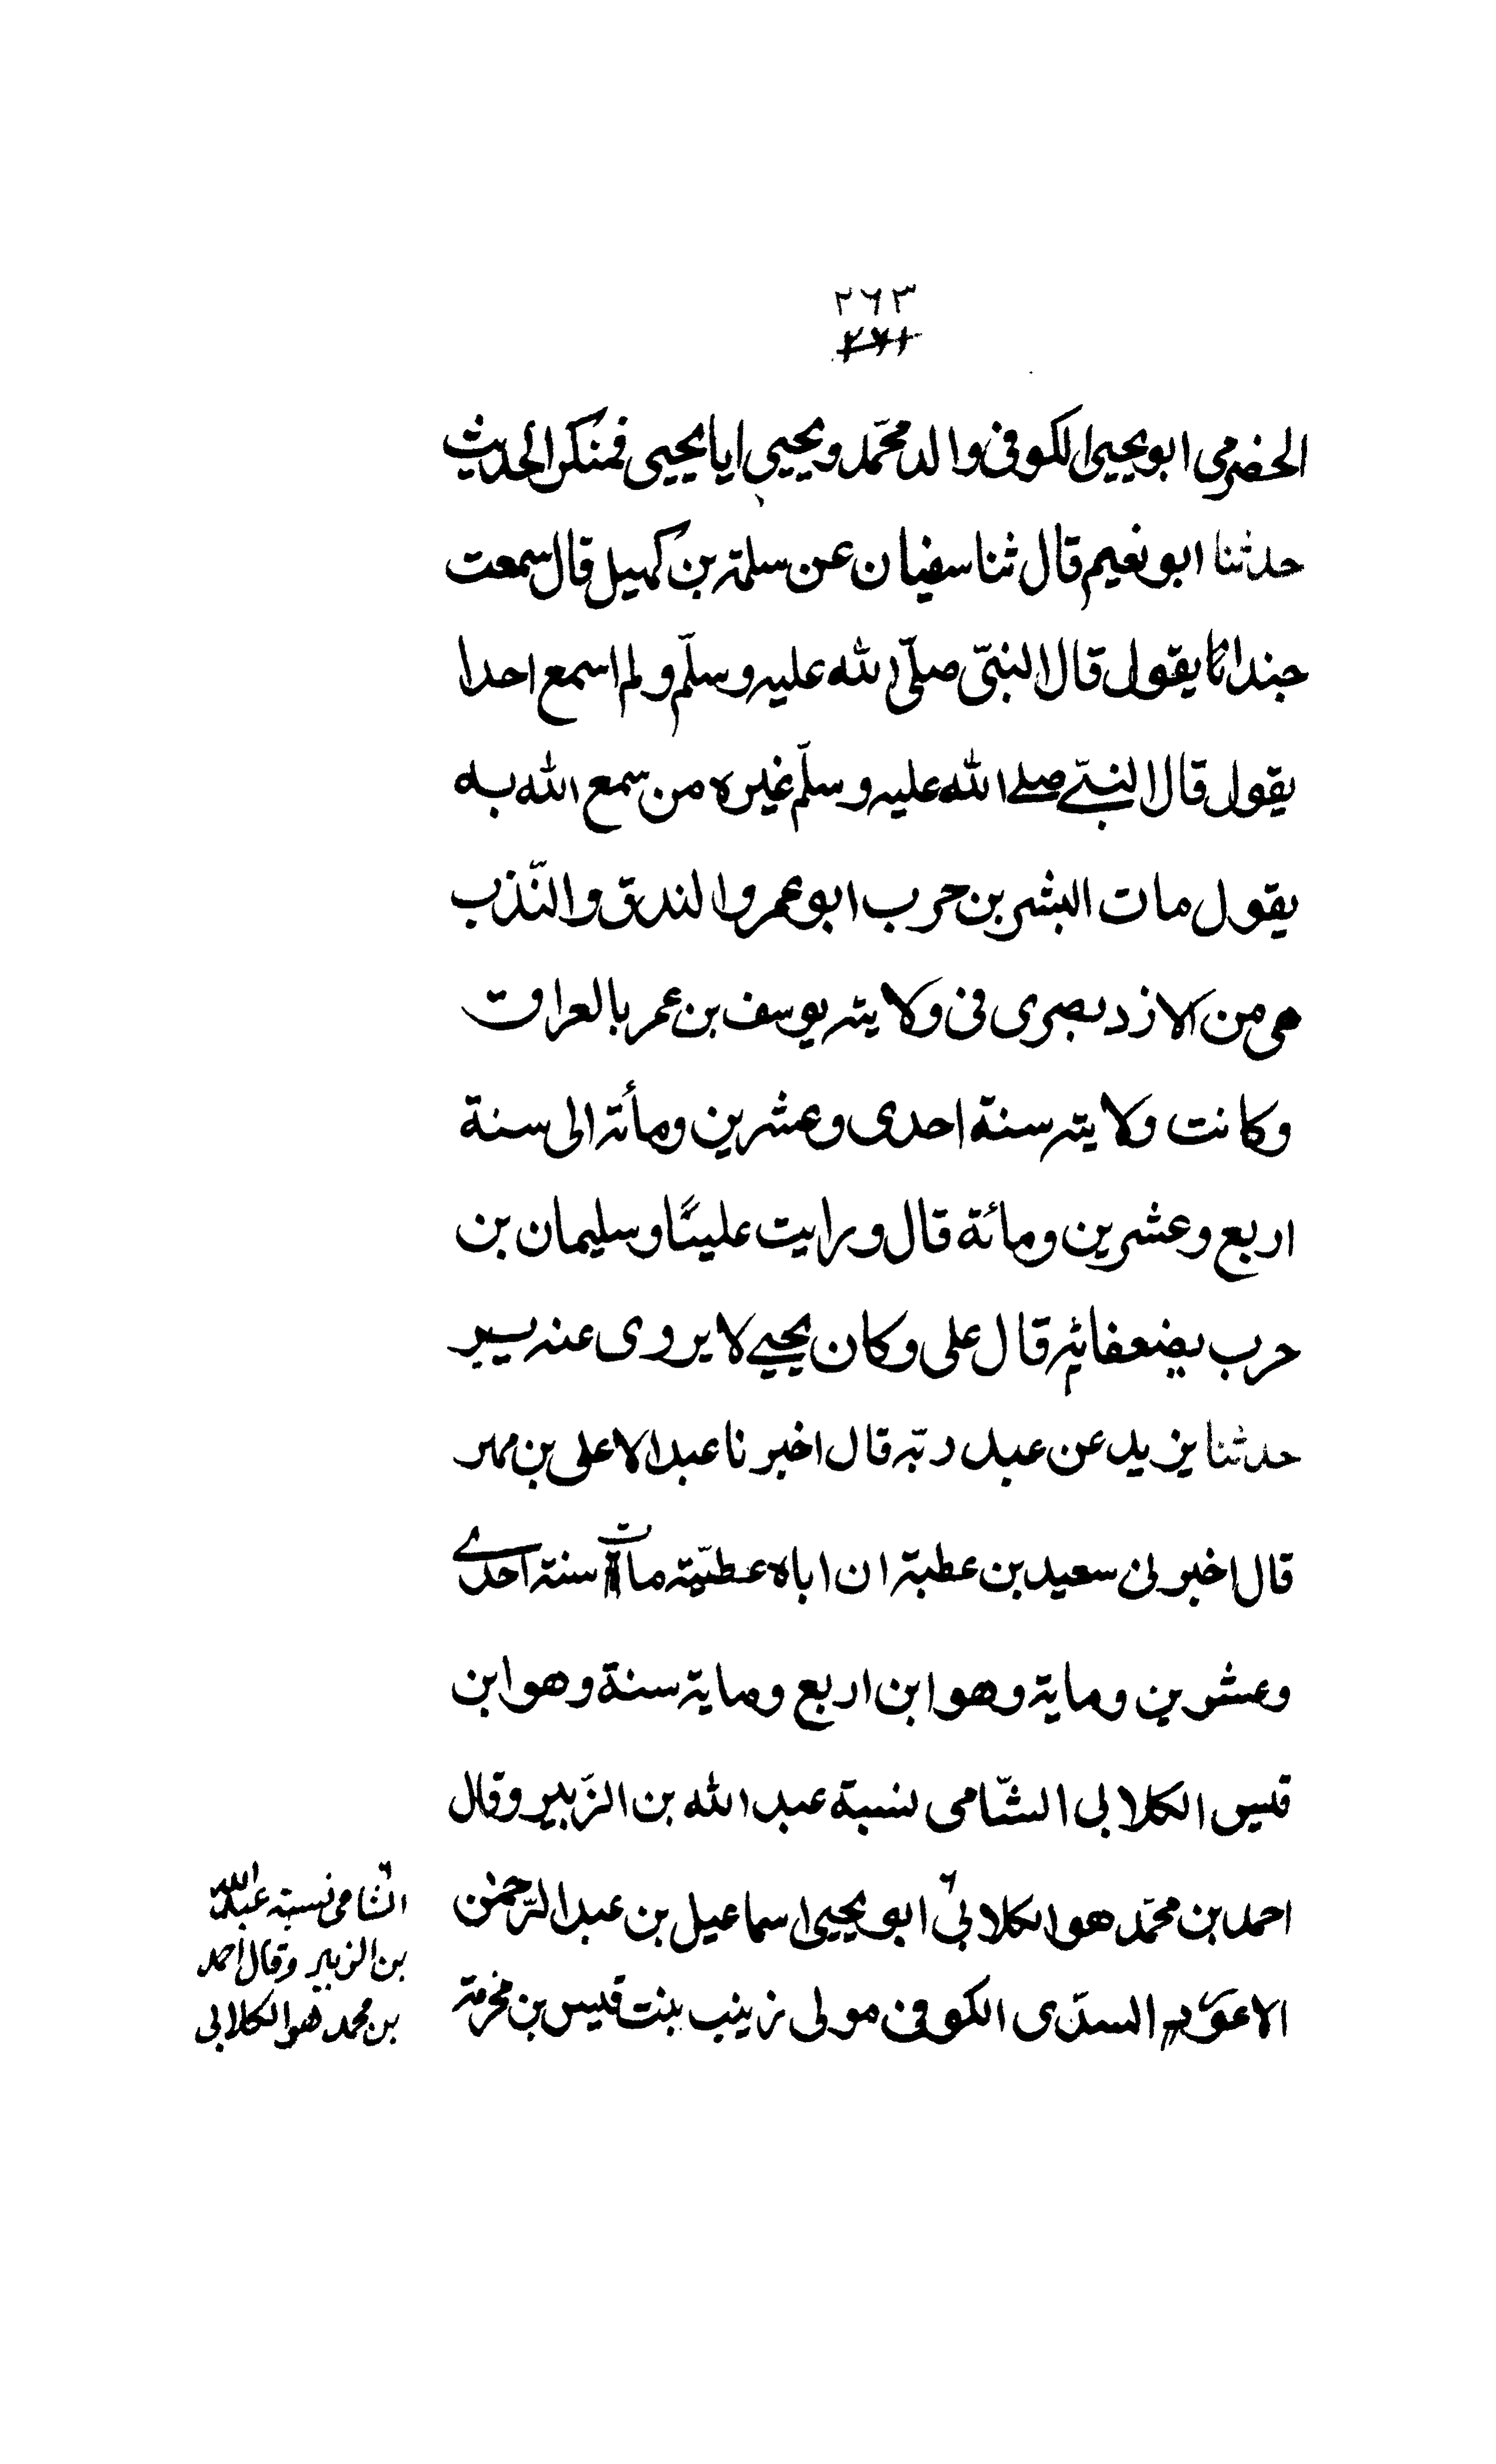 ٢٦٣
الحضرمي ابو يحيى الكوفى والد محمّد ويحيى ايا يحيى فمنكر الحديث
حدثنا ابو نعيم قال ثنا سفيان عن سلمة بن كهيل قال سمعت
يقول قال النبىّ صلّى الله عليه وسلّم ولم اسمع احدا
يقول قال النبىّ صلى الله عليه وسلّم غيره من سمع الله به
يقول مات البشر بن حرب ابو عمرو الندق والنّدب
حى من الازد بصرى فى ولايته يوسف بن عمر بالعراق
وكانت ولايته سنة احدى وعشرين ومأئة الى سنة
اربع وعشرين ومائة قال ورايت عليّا وسليمان بن
حرب يضعفانه قال على وكان يحيى لا يروى عنه يسير
حدثنا يزيد عن عبد ربّه قال اخبرنا عبد الاعلى بن مهر
قال اخبرنى سعيد بن عطبة ان اباه عطيّة مات سنة احدى
وعشرين وماية وهو ابن اربع وماية سنة وهو ابن
قيس الكلابى الشّامى نسبة عبد الله بن الزّبير وقال
احمد بن محمّد هو الكلابى ابو يحيى اسماعيل بن عبد الرّحمن
الاعور السدّى الكوفى مولى زينب بنت قيس بن مخرمة
الشامى نسبة عبد الله
بن الزبير وقال احمد
بن محمد هو الكلابى